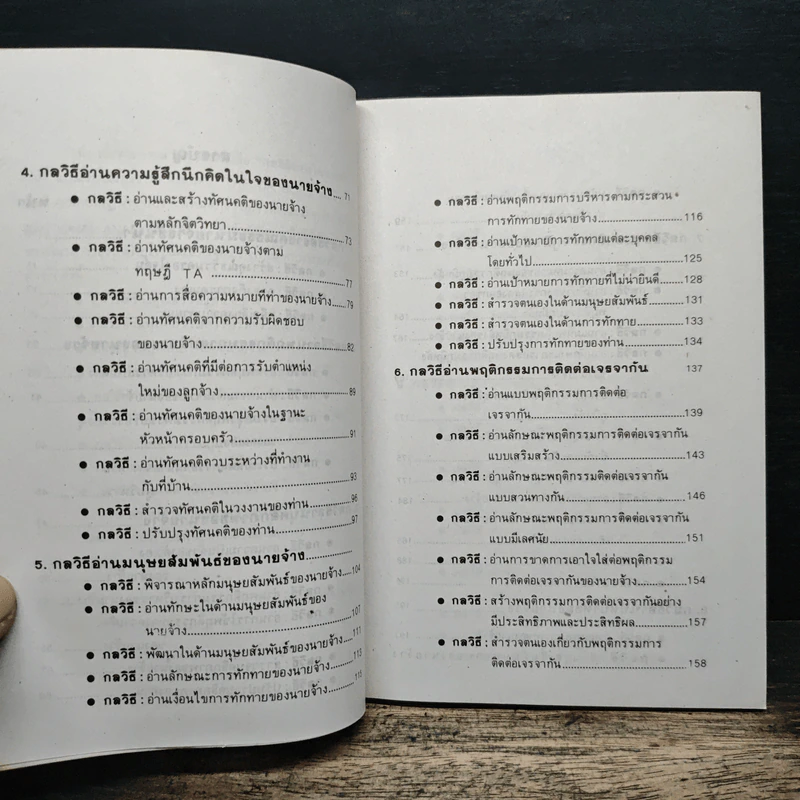 4. กลวิธีอ่านความรู้สึกนึกคิดในใจของนายจ้าง.... 71
● กลวิธี : อ่านและสร้างทัศนคติของนายจ้าง
ตามหลักจิตวิทยา.......................... 73
● กลวิธี : อ่านทัศนคติของนายจ้างตาม
ทฤษฎี TA.......................... 77
● กลวิธี : อ่านการสื่อความหมายที่ทำของนายจ้าง... 79
● กลวิธี : อ่านทัศนคติจากความรับผิดชอบ
ของนายจ้าง.......................... 82
● กลวิธี : อ่านทัศนคติที่มีต่อการรับตำแหน่ง
ใหม่ของลูกจ้าง.......................... 89
● กลวิธี : อ่านทัศนคติของนายจ้างในฐานะ
หัวหน้าครอบครัว.......................... 91
● กลวิธี : อ่านทัศนคติควบระหว่างที่ทำงาน
กับที่บ้าน.......................... 93
● กลวิธี : สำรวจทัศนคติในวงงานของท่าน.......... 96
● กลวิธี : ปรับปรุงทัศนคติของท่าน.......... 97
5. กลวิธีอ่านมนุษยสัมพันธ์ของนายจ้าง..........
● กลวิธี : พิจารณาหลักมนุษยสัมพันธ์ของนายจ้าง.... 104
● กลวิธี : อ่านทักษะในด้านมนุษยสัมพันธ์ของ
นายจ้าง.......................... 107
● กลวิธี : พัฒนาในด้านมนุษยสัมพันธ์ของนายจ้าง.... 111
● กลวิธี : อ่านลักษณะการทักทายของนายจ้าง.......... 113
● กลวิธี : อ่านเงื่อนไขการทักทายของนายจ้าง..........
● กลวิธี : อ่านพฤติกรรมการบริหารตามกระสวน
การทักทายของนายจ้าง.................... 116
● กลวิธี : อ่านเป้าหมายการทักทายแต่ละบุคคล
โดยทั่วไป.......................... 125
● กลวิธี : อ่านเป้าหมายการทักทายที่ไม่น่ายินดี..... 128
● กลวิธี : สำรวจตนเองในด้านมนุษยสัมพันธ์.......... 131
● กลวิธี : สำรวจตนเองในด้านการทักทาย.......... 133
● กลวิธี : ปรับปรุงการทักทายของท่าน.......... 134
6. กลวิธีอ่านพฤติกรรมการติดต่อเจรจากัน 137
● กลวิธี : อ่านแบบพฤติกรรมการติดต่อ
เจรจากัน.......................... 139
● กลวิธี : อ่านลักษณะพฤติกรรมการติดต่อเจรจากัน
แบบเสริมสร้าง.......................... 143
● กลวิธี : อ่านลักษณะพฤติกรรมติดต่อเจรจากัน
แบบสวนทางกัน.......................... 146
● กลวิธี : อ่านลักษณะพฤติกรรมการติดต่อเจรจากัน
แบบมีเลศนัย.......................... 151
● กลวิธี : อ่านการขาดการเอาใจใส่ต่อพฤติกรรม
การติดต่อเจรจากันของนายจ้าง............ 154
● กลวิธี : สร้างพฤติกรรมการติดต่อเจรจากันอย่าง
มีประสิทธิภาพและประสิทธิผล............ 157
● กลวิธี : สำรวจตนเองเกี่ยวกับพฤติกรรมการ
ติดต่อเจรจากัน.......................... 158